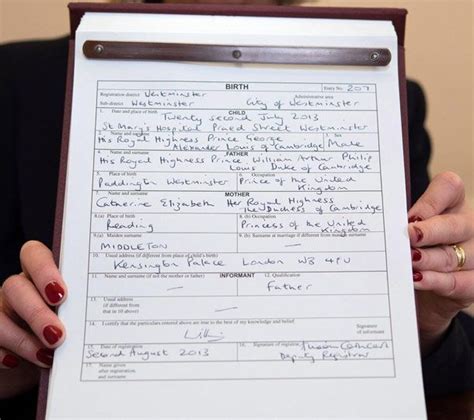 BIRTH Entry No. 207
Registration district Westminster Administrative area
Sub-district Westminster City of Westminster
1. Date and place of birth CHILD
Twenty second July 2013
St Mary's Hospital Praed Street Westminster
2. Name and surname 3. Sex
His Royal Highness Prince George
Alexander Louis of Cambridge Male
4. Name and surname FATHER
His Royal Highness Prince William Arthur Philip
Louis Duke of Cambridge
5. Place of birth 6. Occupation
Paddington Westminster Prince of the United
Kingdom
7. Name and surname MOTHER
Catherine Elizabeth Her Royal Highness
The Duchess of Cambridge
8.(a) Place of birth 8.(b) Occupation
Reading Princess of the United
Kingdom
9.(a) Maiden surname 9.(b) Surname at marriage if different from maiden surname
MIDDLETON
10. Usual address (if different from place of child's birth)
Kensington Palace London W8 4PU
11. Name and surname (if not the mother or father) INFORMANT 12. Qualification
Father
13. Usual address
(if different from that in 10 above)
14. I certify that the particulars entered above are true to the best of my knowledge and belief
Signature of informant
15. Date of registration 16. Signature of registrar
Second August 2013
Deputy Registrar
17. Name given after registration, and surname